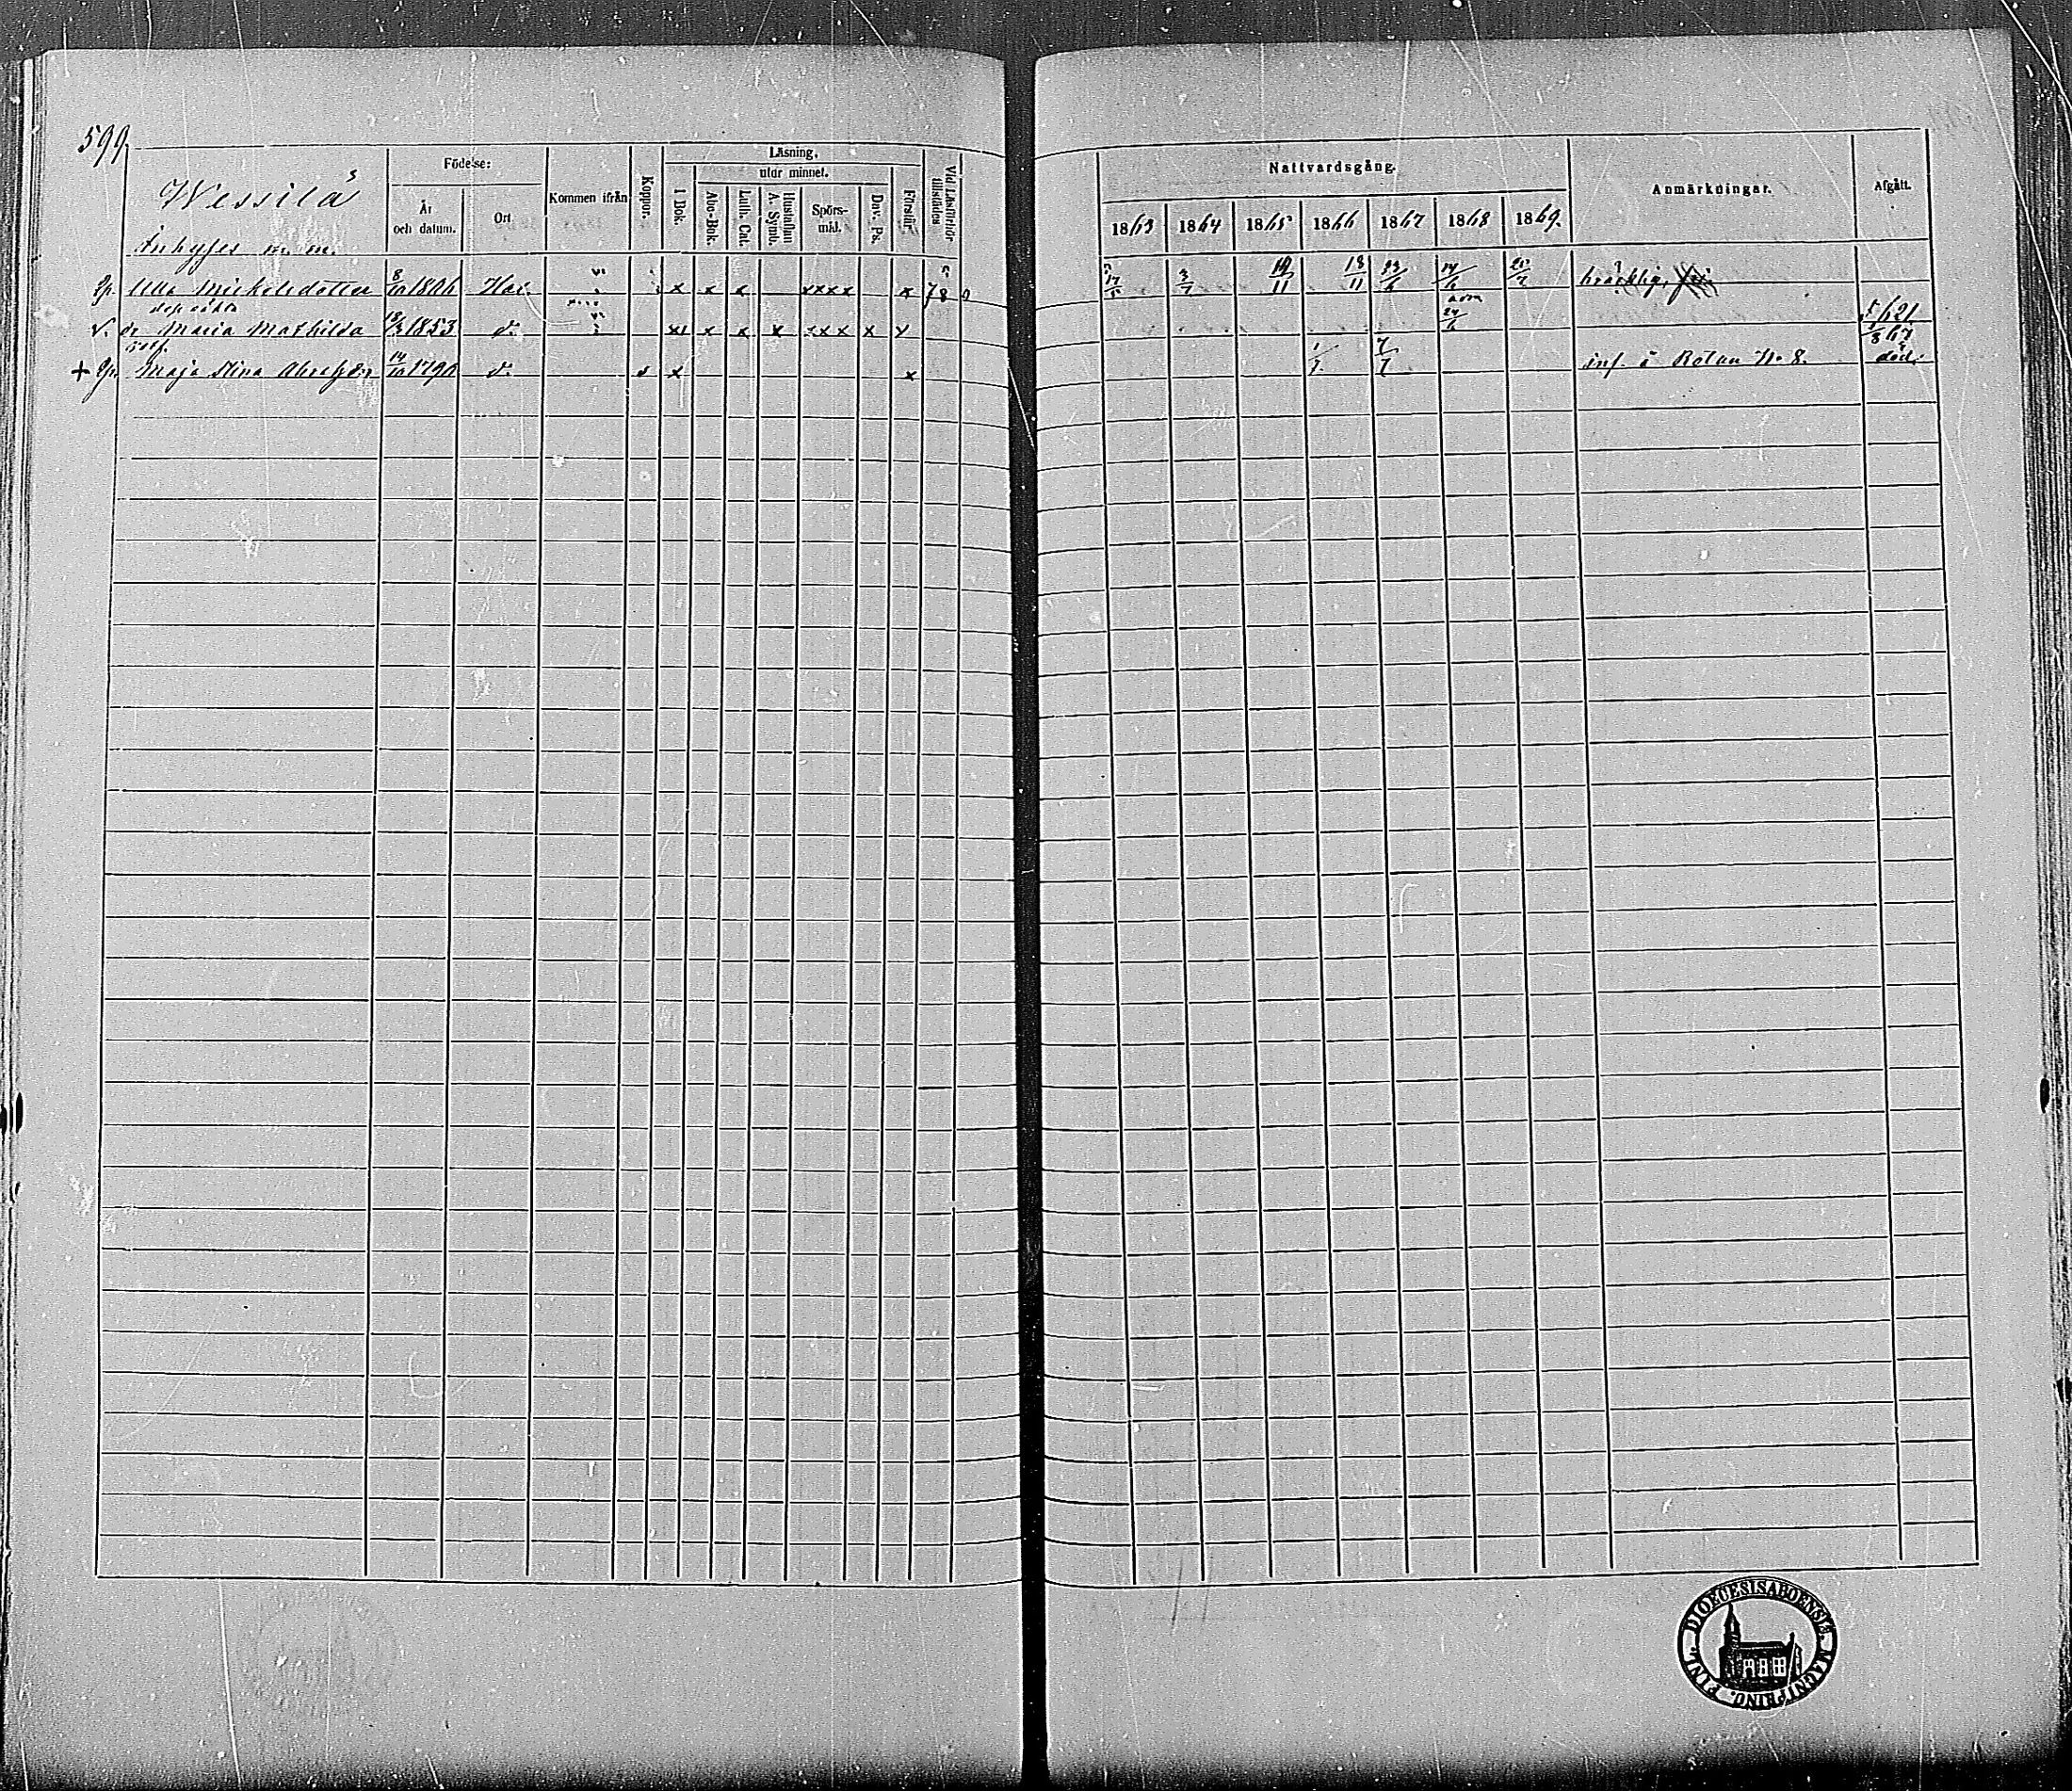 599
Wessilä
Inhyses m. m.
Födelse:
År och datum.
Ort
Kommen ifrån
Koppor.
Läsning,
I Bok.
utur minnet.
Abc-Bok.
Luth. Cat.
Hustaflan A. Symb.
Spörs-mål.
Dav. Ps.
Förstår
Vid Läsförhör tillstädes
Nattvardsgång.
1863 1864 1865 1866 1867 1868 1869.
Anmärkningar.
Afgått.
Ulla Mickelsdotter 8/10 1806 x x x xxxx x 17/5 3/7 19/11 18/11 23/6 14/6 25/7 bräcklig,
dr Maria Mathilda 18/3 1853 d:o x x x xxx x 24/6 621
+ Maja Stina 14/10 1790 d:o x x 1/7 7/7 inf. å Rotan No 8. 67 död.
FINL. DIOECESIS ABOENSIS. MAGNI PRINC.